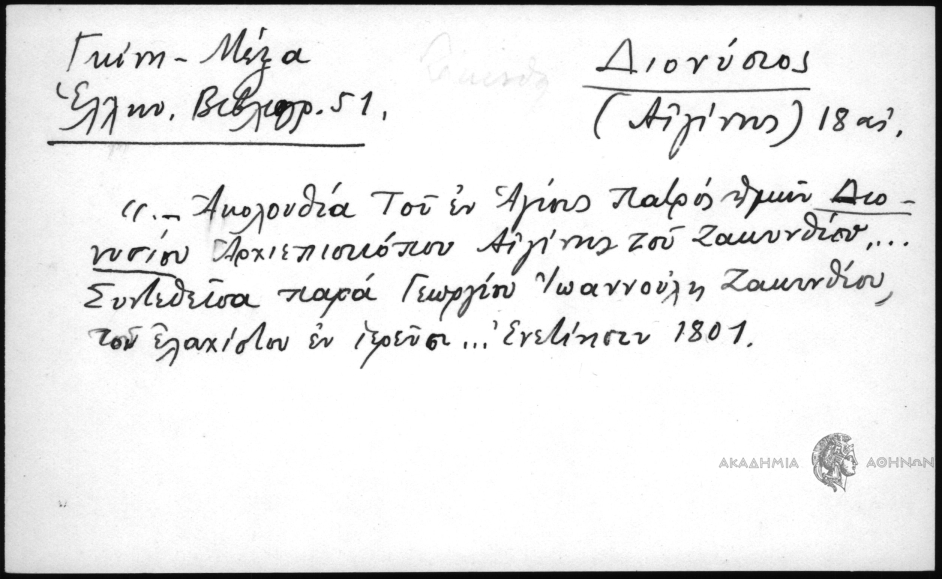 Γκίνη - Μέξα
Ἑλλην. Βιβλιογρ. 51.
Διονύσιος
(Αἰγίνης) 18 αἰ.
«.- Ἀκολουθία Τοῦ ἐν Ἁγίοις Πατρός ἡμῶν Διο-
νυσίου Ἀρχιεπισκόπου Αἰγίνης τοῦ Ζακυνθίου...
Συντεθεῖσα παρά Γεωργίου Ἰωαννούλη Ζακυνθίου,
τοῦ ἐλαχίστου ἐν ἱερεῦσι... Ἐνετίησιν 1801.
ΑΚΑΔΗΜΙΑ ΑΘΗΝΩΝ